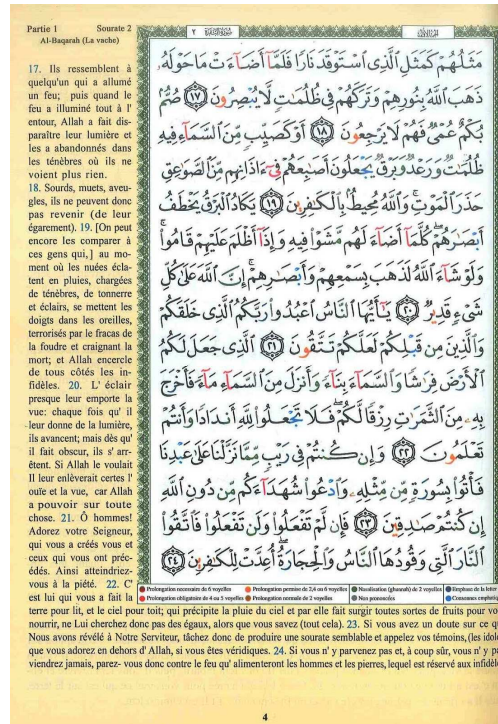 Partie 1
Sourate 2
Al-Baqarah (La vache)
17. Ils ressemblent à
quelqu'un qui a allumé
un feu; puis quand le
feu a illuminé tout à l'
entour, Allah a fait dis-
paraître leur lumière et
les a abandonnés dans
les ténèbres où ils ne
voient plus rien.
18. Sourds, muets, aveu-
gles, ils ne peuvent donc
pas revenir (de leur
égarement). 19. [On peut
encore les comparer à
ces gens qui,] au mo-
ment où les nuées écla-
tent en pluies, chargées
de ténèbres, de tonnerre
et éclairs, se mettent les
doigts dans les oreilles,
terrorisés par le fracas de
la foudre et craignant la
mort; et Allah encercle
de tous côtés les in-
fidèles. 20. L' éclair
presque leur emporte la
vue: chaque fois qu' il
leur donne de la lumière,
ils avancent; mais dès qu'
il fait obscur, ils s' arr-
êtent. Si Allah le voulait
Il leur enlèverait certes l'
ouïe et la vue, car Allah
a pouvoir sur toute
chose. 21. Ô hommes!
Adorez votre Seigneur,
qui vous a créés vous et
ceux qui vous ont préc-
édés. Ainsi atteindriez-
vous à la piété. 22. C'
est lui qui vous a fait la
terre pour lit, et le ciel pour toit; qui précipite la pluie du ciel et par elle fait surgir toutes sortes de fruits pour
nourrir, ne Lui cherchez donc pas des égaux, alors que vous savez (tout cela). 23. Si vous avez un doute sur ce
Nous avons révélé à Notre Serviteur, tâchez donc de produire une sourate semblable et appelez vos témoins, (les
que vous adorez en dehors d' Allah, si vous êtes véridiques. 24. Si vous n' y parvenez pas et, à coup sûr, vous n' y
viendrez jamais, parez- vous donc contre le feu qu' alimenteront les hommes et les pierres, lequel est réservé aux
مَثَلُهُمْ كَمَثَلِ الَّذِي اسْتَوْقَدَ نَارًا فَلَمَّا أَضَاءَتْ مَا حَوْلَهُ
ذَهَبَ اللَّهُ بِنُورِهِمْ وَتَرَكَهُمْ فِي ظُلُمَاتٍ لَا يُبْصِرُونَ ١٧ صُمٌّ
بُكْمٌ عُمْيٌ فَهُمْ لَا يَرْجِعُونَ ١٨ أَوْ كَصَيِّبٍ مِنَ السَّمَاءِ فِيهِ
ظُلُمَاتٌ وَرَعْدٌ وَبَرْقٌ يَجْعَلُونَ أَصَابِعَهُمْ فِي آذَانِهِمْ مِنَ الصَّوَاعِقِ
حَذَرَ الْمَوْتِ وَاللَّهُ مُحِيطٌ بِالْكَافِرِينَ ١٩ يَكَادُ الْبَرْقُ يَخْطَفُ
أَبْصَارَهُمْ كُلَّمَا أَضَاءَ لَهُمْ مَشَوْا فِيهِ وَإِذَا أَظْلَمَ عَلَيْهِمْ قَامُوا
وَلَوْ شَاءَ اللَّهُ لَذَهَبَ بِسَمْعِهِمْ وَأَبْصَارِهِمْ إِنَّ اللَّهَ عَلَى كُلِّ
شَيْءٍ قَدِيرٌ ٢٠ يَا أَيُّهَا النَّاسُ اعْبُدُوا رَبَّكُمُ الَّذِي خَلَقَكُمْ
وَالَّذِينَ مِنْ قَبْلِكُمْ لَعَلَّكُمْ تَتَّقُونَ ٢١ الَّذِي جَعَلَ لَكُمُ
الْأَرْضَ فِرَاشًا وَالسَّمَاءَ بِنَاءً وَأَنْزَلَ مِنَ السَّمَاءِ مَاءً فَأَخْرَجَ
بِهِ مِنَ الثَّمَرَاتِ رِزْقًا لَكُمْ فَلَا تَجْعَلُوا لِلَّهِ أَنْدَادًا وَأَنْتُمْ
تَعْلَمُونَ ٢٢ وَإِنْ كُنْتُمْ فِي رَيْبٍ مِمَّا نَزَّلْنَا عَلَى عَبْدِنَا
فَأْتُوا بِسُورَةٍ مِنْ مِثْلِهِ وَادْعُوا شُهَدَاءَكُمْ مِنْ دُونِ اللَّهِ
إِنْ كُنْتُمْ صَادِقِينَ ٢٣ فَإِنْ لَمْ تَفْعَلُوا وَلَنْ تَفْعَلُوا فَاتَّقُوا
النَّارَ الَّتِي وَقُودُهَا النَّاسُ وَالْحِجَارَةُ أُعِدَّتْ لِلْكَافِرِينَ ٢٤
Prolongation necessaire de 6 voyelles
Prolongation permise de 2,4 ou 6 voyelles
Nasalisation (ghunnah) de 2 voyelles
Emphase de la lettre
Prolongation obligatoire de 4 ou 5 voyelles
Prolongation normale de 2 voyelles
Non prononcées
Consonnes
4